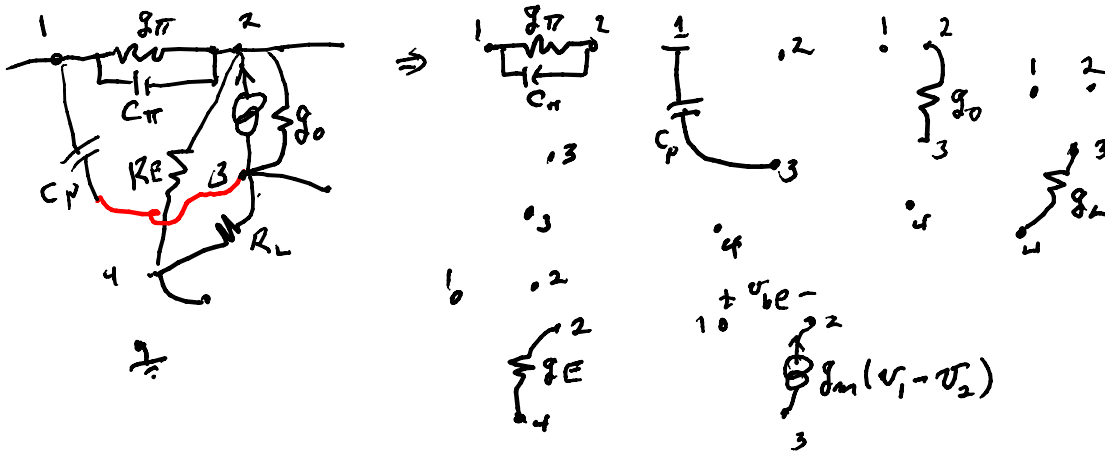 1 gπ 2
Cπ
Cμ RE 3 go
RL
4
⇒
1 gπ 2
Cπ
.3
.3
1
.2
Cμ
3
.4
1 2
go
3
.4
1 2
3
gL
4
1 .2
2
gE
4
+ vbe −
1 2
gm(v1 − v2)
3